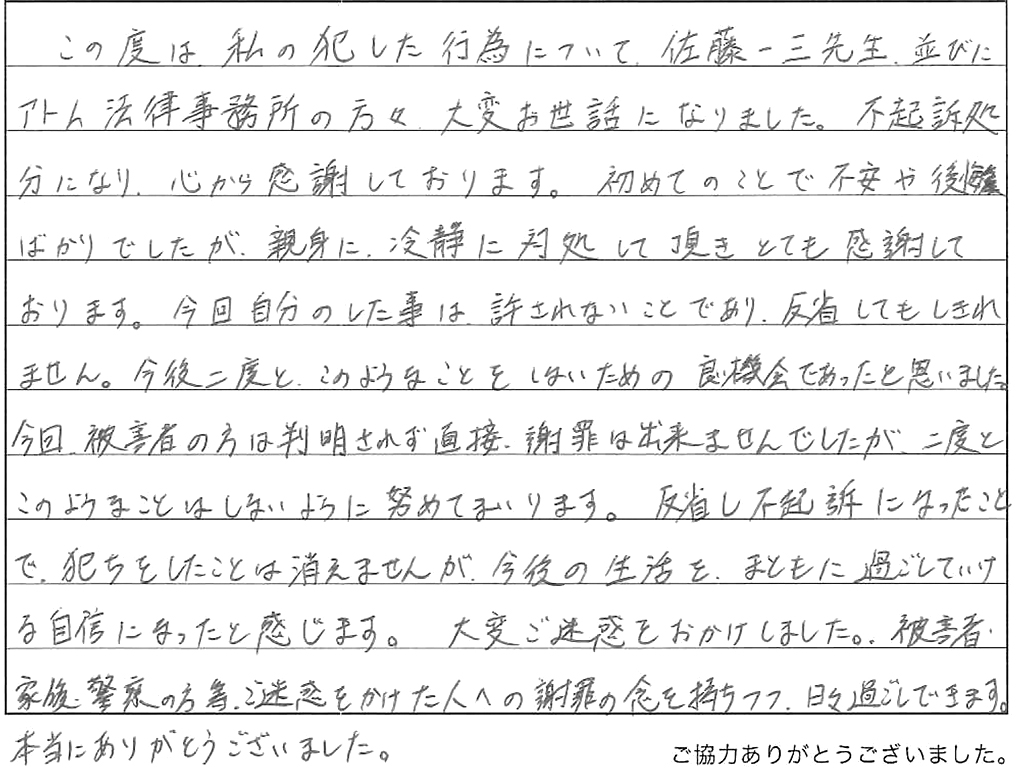 この度は、私の犯した行為について、佐藤一三先生、並びに
アトム法律事務所の方々、大変お世話になりました。不起訴処
分になり、心から感謝しております。初めてのことで不安や後悔
ばかりでしたが、親身に、冷静に対処して頂きとても感謝して
おります。今回自分のした事は、許されないことであり、反省してもしきれ
ません。今後二度と、このようなことをしないための良い機会であったと思いました。
今回、被害者の方は判明されず直接、謝罪は出来ませんでしたが、二度と
このようなことはしないように努めてまいります。反省し不起訴になったこと
で、犯ちをしたことは消えませんが、今後の生活を、まともに過ごしていけ
る自信になったと感じます。大変ご迷惑をおかけしました。、被害者・
家族・警察の方等、ご迷惑をかけた人への謝罪の念を持ちつつ、日々過ごしできます。
本当にありがとうございました。
ご協力ありがとうございました。